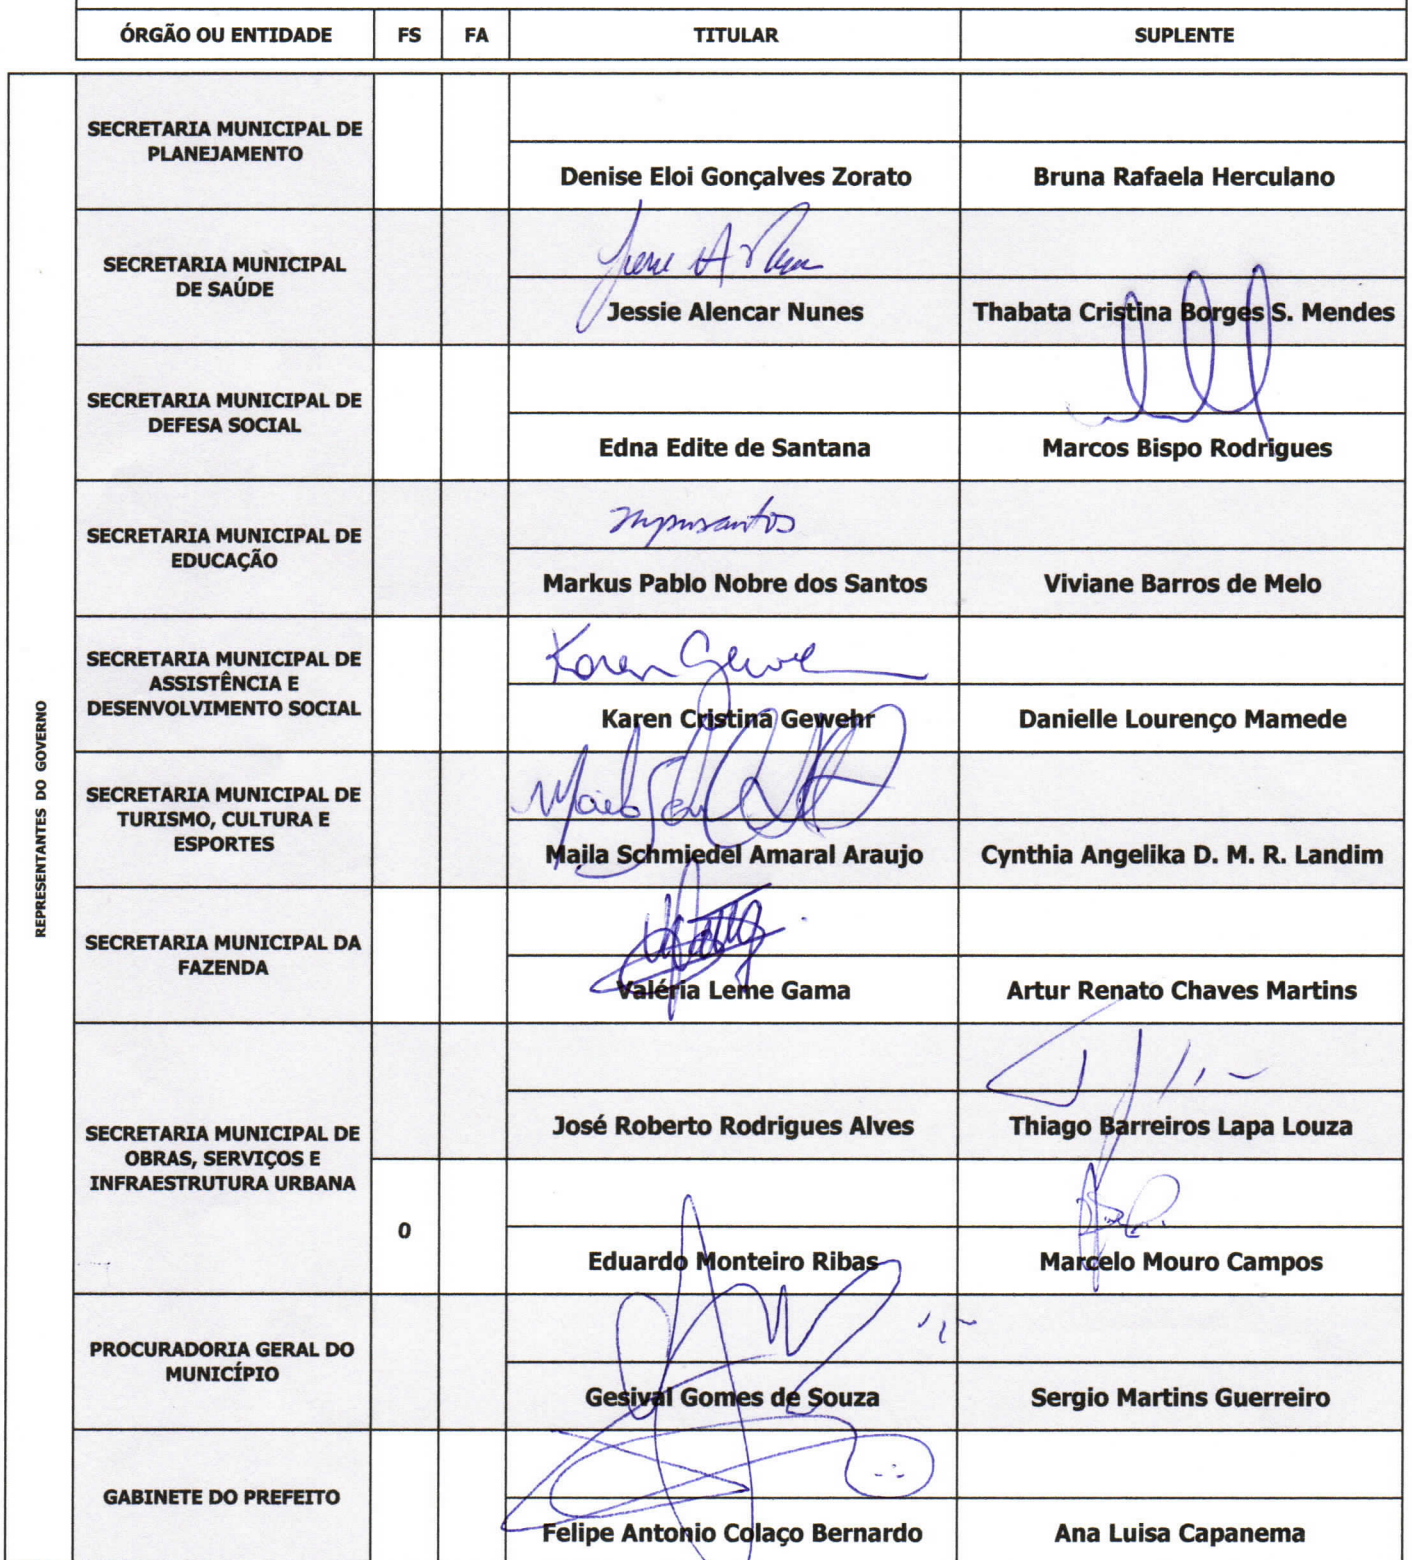 ÓRGÃO OU ENTIDADE FS FA TITULAR SUPLENTE
REPRESENTANTES DO GOVERNO
SECRETARIA MUNICIPAL DE
PLANEJAMENTO
Denise Eloi Gonçalves Zorato Bruna Rafaela Herculano
SECRETARIA MUNICIPAL
DE SAÚDE
Jessie Alencar Nunes Thabata Cristina Borges S. Mendes
SECRETARIA MUNICIPAL DE
DEFESA SOCIAL
Edna Edite de Santana Marcos Bispo Rodrigues
SECRETARIA MUNICIPAL DE
EDUCAÇÃO
Markus Pablo Nobre dos Santos Viviane Barros de Melo
SECRETARIA MUNICIPAL DE
ASSISTÊNCIA E
DESENVOLVIMENTO SOCIAL
Karen
Karen Cristina Gewehr Danielle Lourenço Mamede
SECRETARIA MUNICIPAL DE
TURISMO, CULTURA E
ESPORTES
Maila Schmiedel Amaral Araujo Cynthia Angelika D. M. R. Landim
SECRETARIA MUNICIPAL DA
FAZENDA
Valéria Leme Gama Artur Renato Chaves Martins
SECRETARIA MUNICIPAL DE
OBRAS, SERVIÇOS E
INFRAESTRUTURA URBANA
José Roberto Rodrigues Alves Thiago Barreiros Lapa Louza
0
Eduardo Monteiro Ribas Marcelo Mouro Campos
PROCURADORIA GERAL DO
MUNICÍPIO
Gesival Gomes de Souza Sergio Martins Guerreiro
GABINETE DO PREFEITO
Felipe Antonio Colaço Bernardo Ana Luisa Capanema